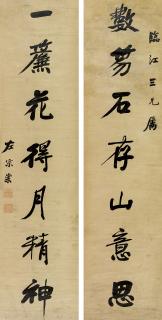 臨江三兄屬
數笏石存山意思
一簾花得月精神
左宗棠